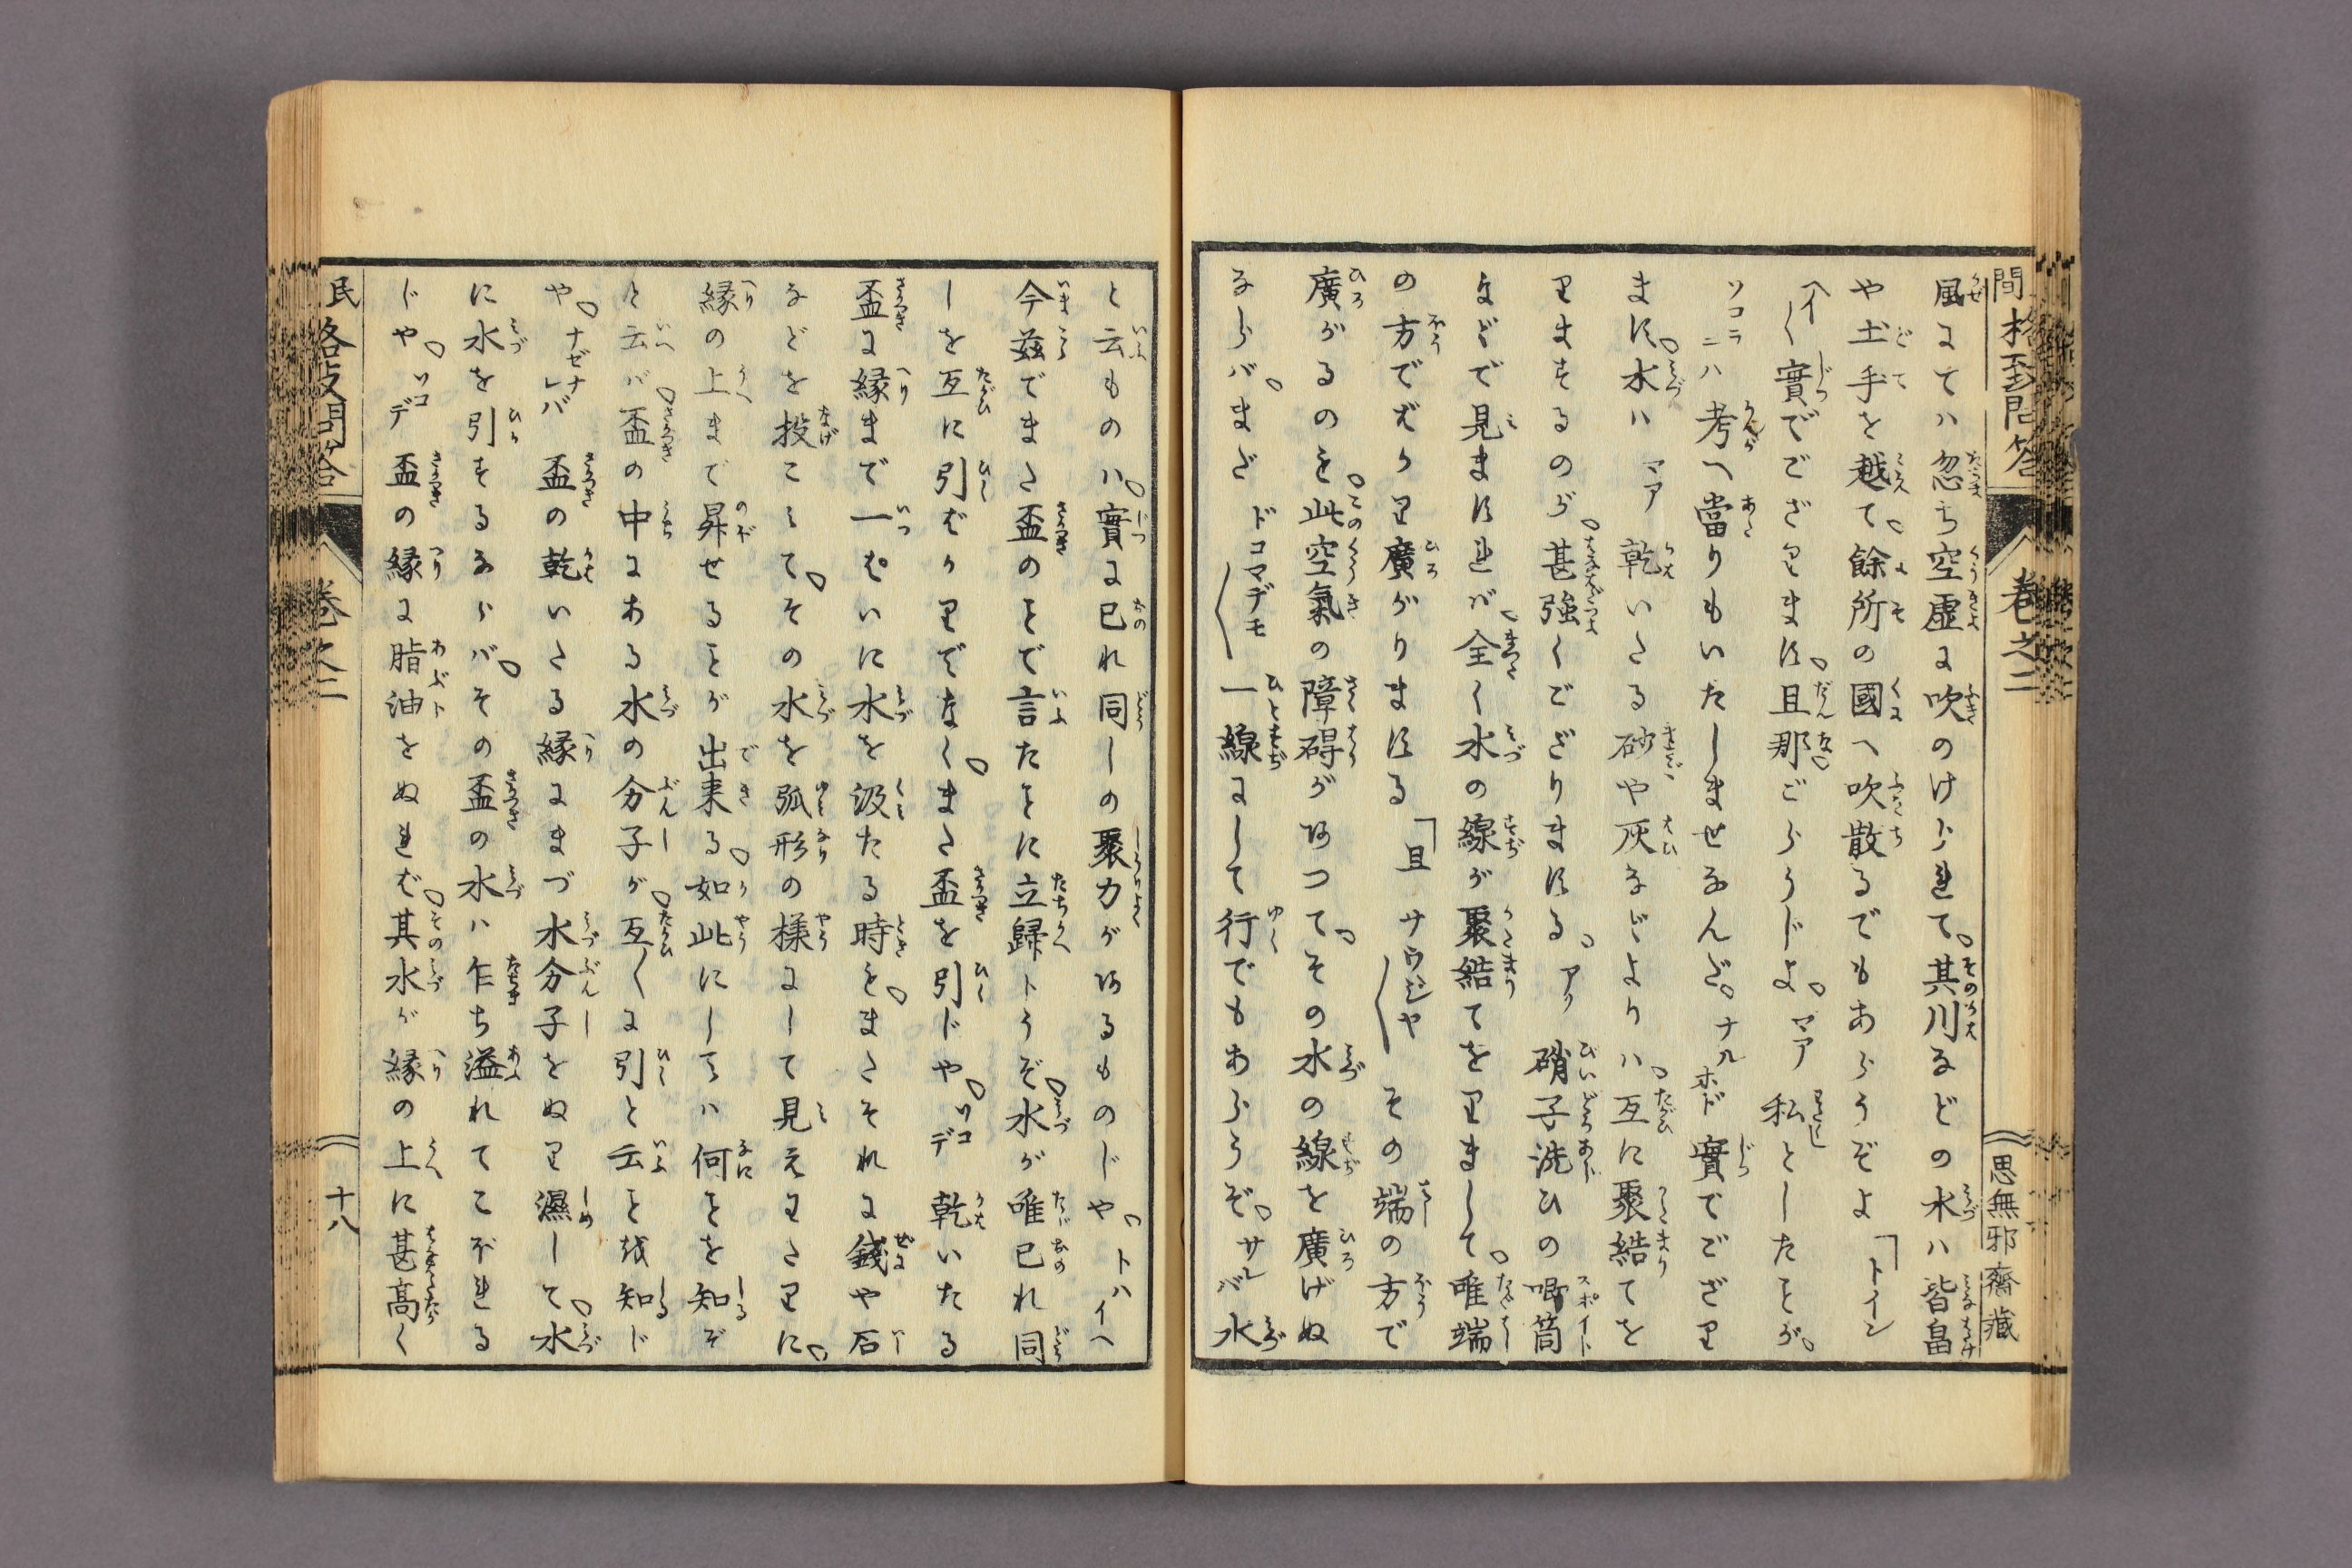 間格致問答
巻之二
思無邪齋藏
風にてハ忽ち空虚に吹のけられて。其川などの水ハ皆畠
や土手を越て。餘所の國へ吹散るでもあらうぞよ「トイン
ヘイ〱實でござりまする。且那ごらうじよ。マア私としたことが。
ソコラニハ考へ當りもいたしませなんだ。ナルホド實でござり
ます。水ハマア乾いたる砂や灰などよりハ。互に聚結てを
りまするのが。甚強くござりまする。アノ硝子洗ひの喞筒
などで見ますれバ。全く水の線が聚結てをりまして。唯端
の方でばかり廣がりまする「且サウジヤ〱その端の方で
廣がるのも。此空氣の障碍があつて。その水の線を廣げぬ
ならバ。まだドコマデモ〱一線にして行でもあらうぞ。サレバ水
と云ものハ。實に己れ同しの聚力があるものじや。トハイヘ
今茲でまた盃のことで言たことに立歸らうぞ。水が唯己れ同
しを互に引ばかりでなく。また盃を引じや。ソコデ乾いたる
盃に縁まで一ぱいに水を汲たる時も。またそれに錢や石
などを投こみて。その水を弧形の様にして見えわたりに。
縁の上まで昇せることが出来る。如此にしてハ何ことを知ぞ
と云バ。盃の中にある水の分子が。互〱に引と云ことを知じ
や。ナゼナレバ盃の乾いたる縁にまづ水分子をぬり濕して。水
に水を引するならバ。その盃の水ハ乍ち溢れてこぼれる
じや。ソコデ盃の縁に脂油をぬれば。其水が縁の上に甚高く
民格致問答
巻之二
十八